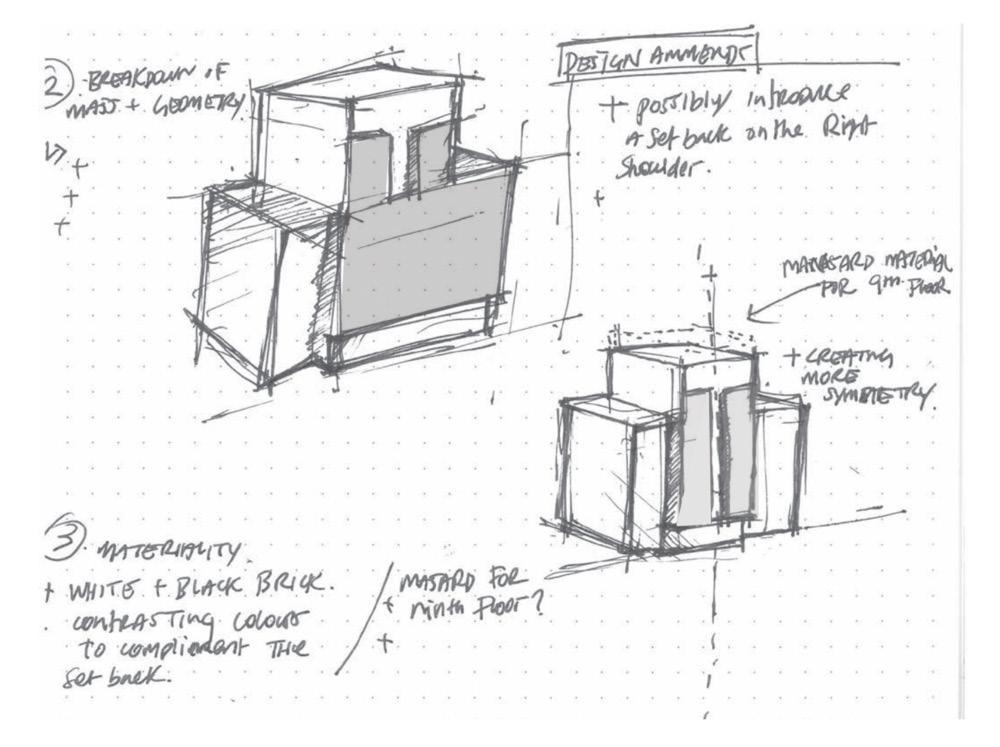 2 BREAKDOWN OF
MASS + GEOMETRY
+
+
+
DESIGN AMMENDS
+ possibly introduce
A set back on the Right
Shoulder.
+
MANASARD MATERIAL
FOR 9th FLOOR
+ CREATING
MORE
SYMMETRY.
3 MATERIALITY
+ WHITE + BLACK BRICK.
. CONTRASTING COLOUR
TO compliment THE
set back.
MASARD FOR
+ ninth FLOOR?
+